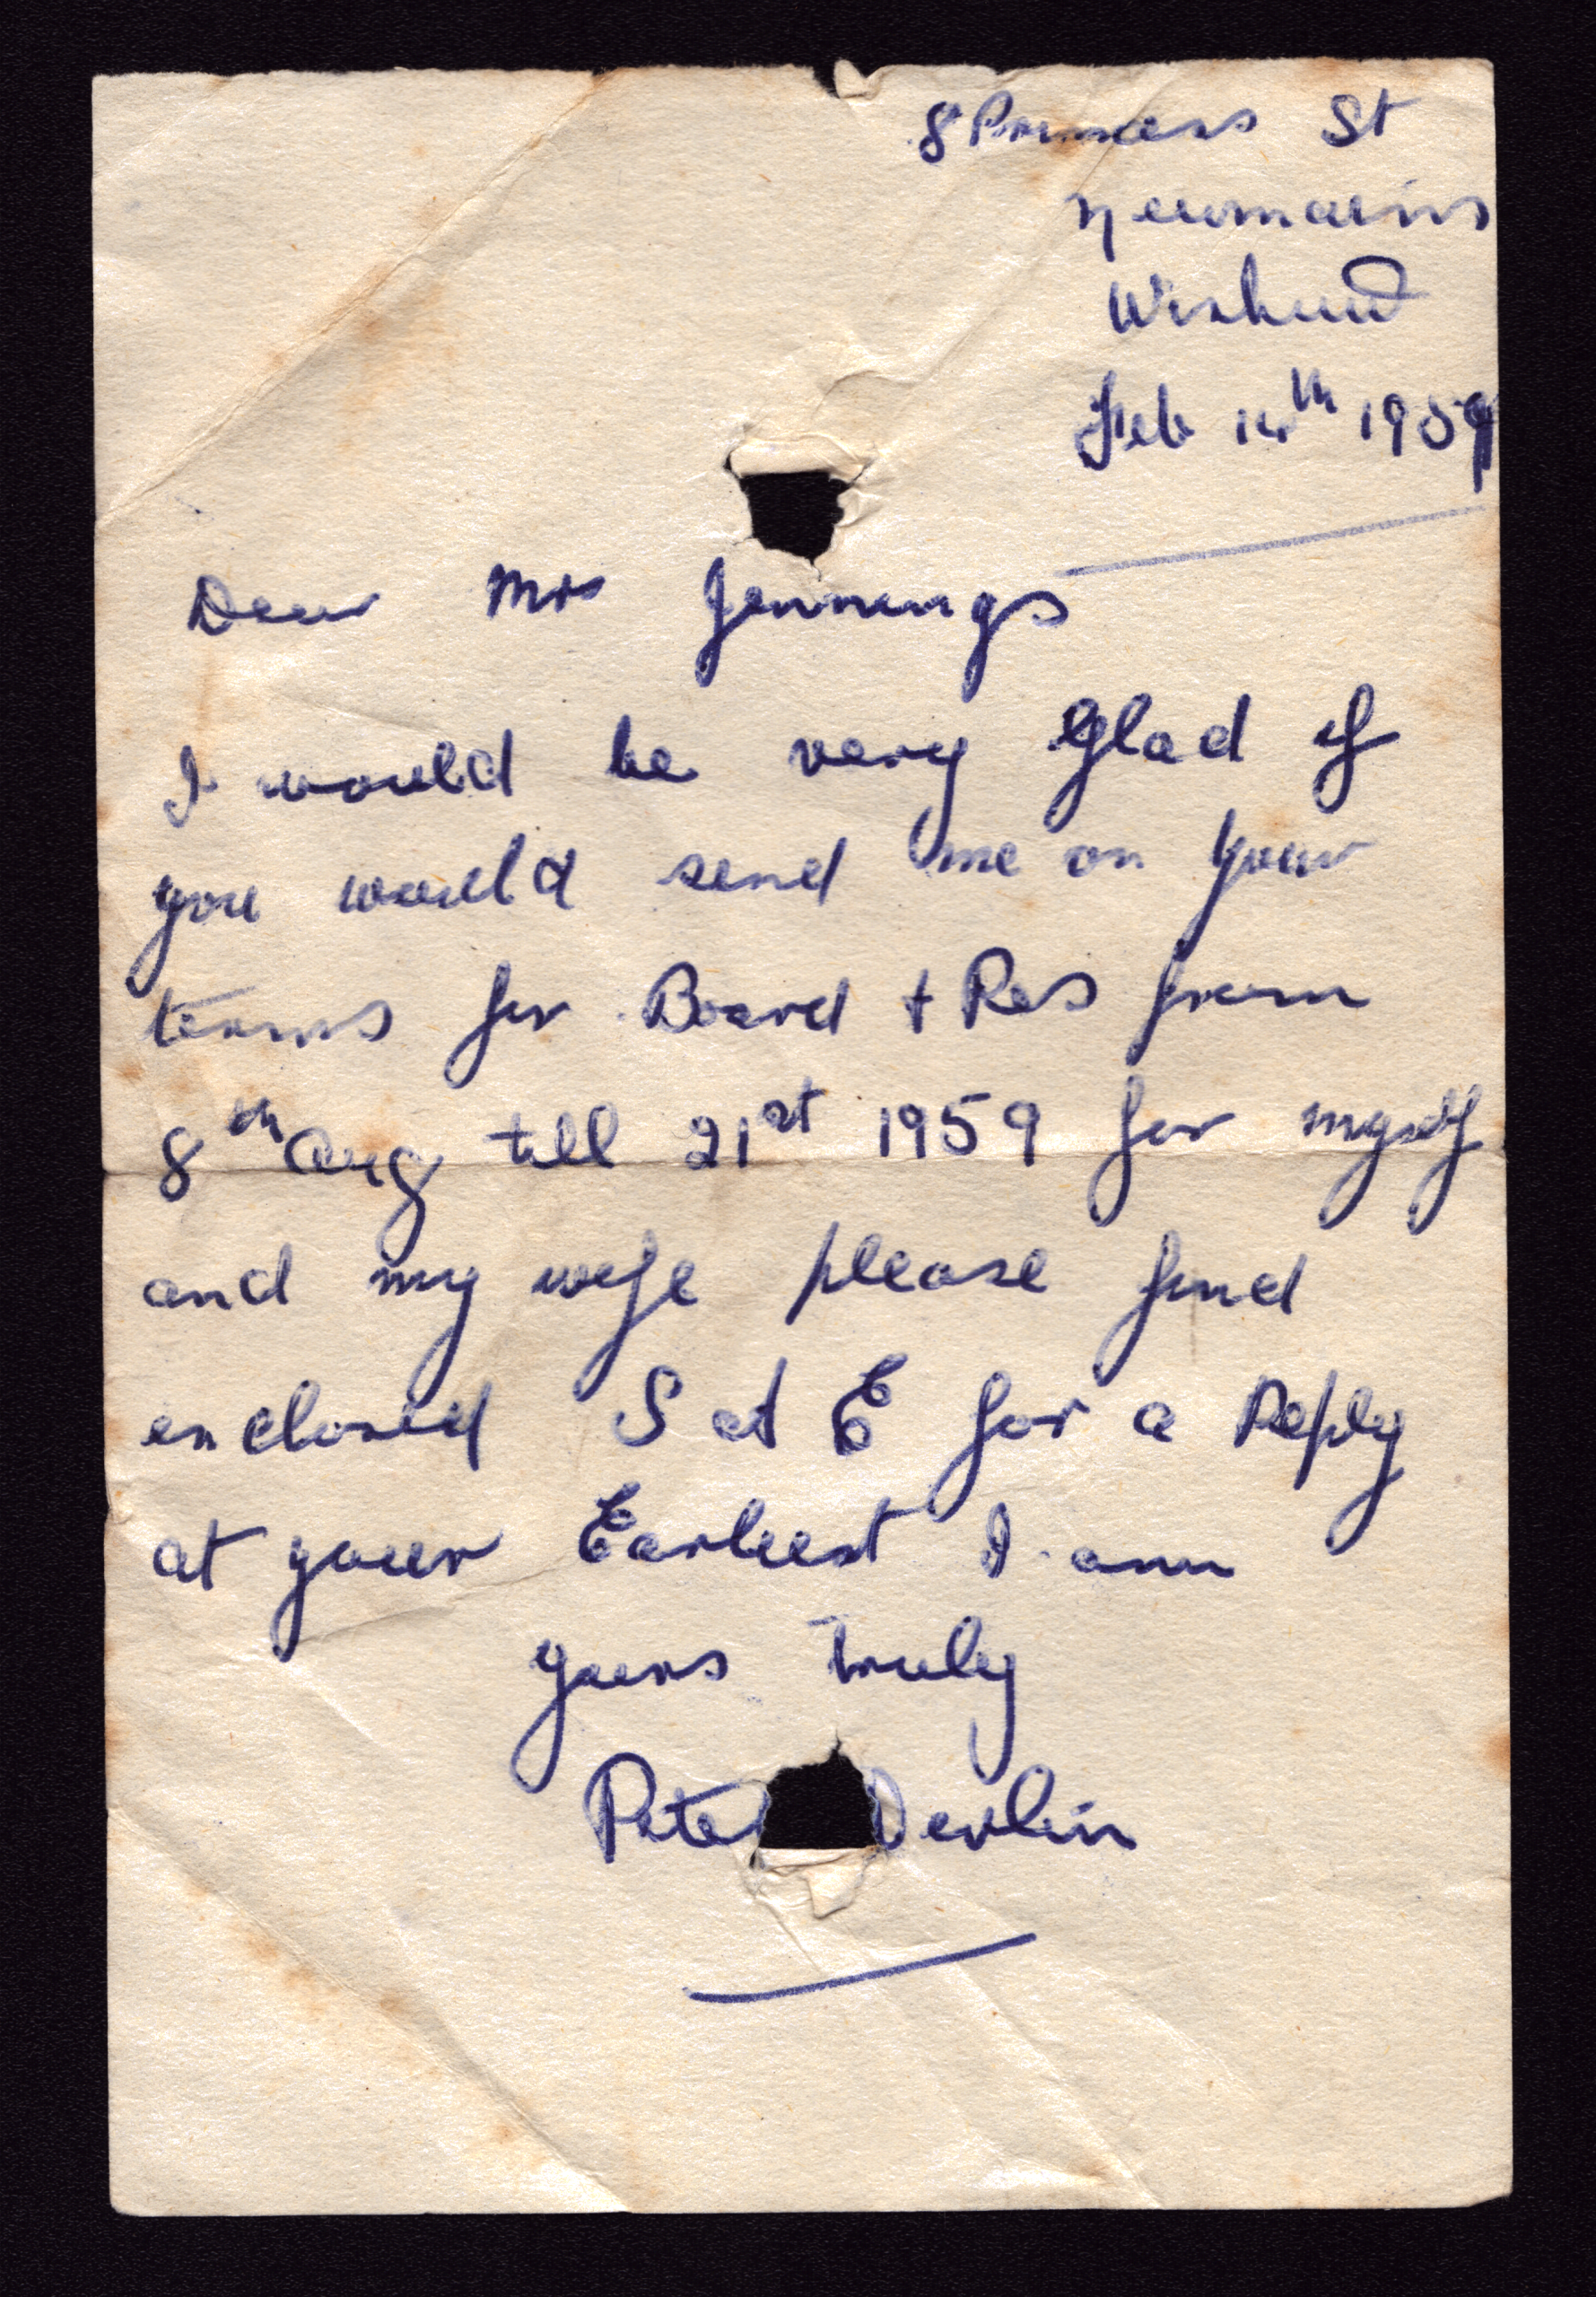 8 Princess St
Newmains
Wishaw
Feb 14th 1959
Dear Mrs Jennings
I would be very Glad if
you would send me on your
terms for Board + Res from
8th Aug till 21st 1959 for myself
and my wife please find
enclosed S ad E for a Reply
at your Earliest I am
yours truly
Peter Devlin